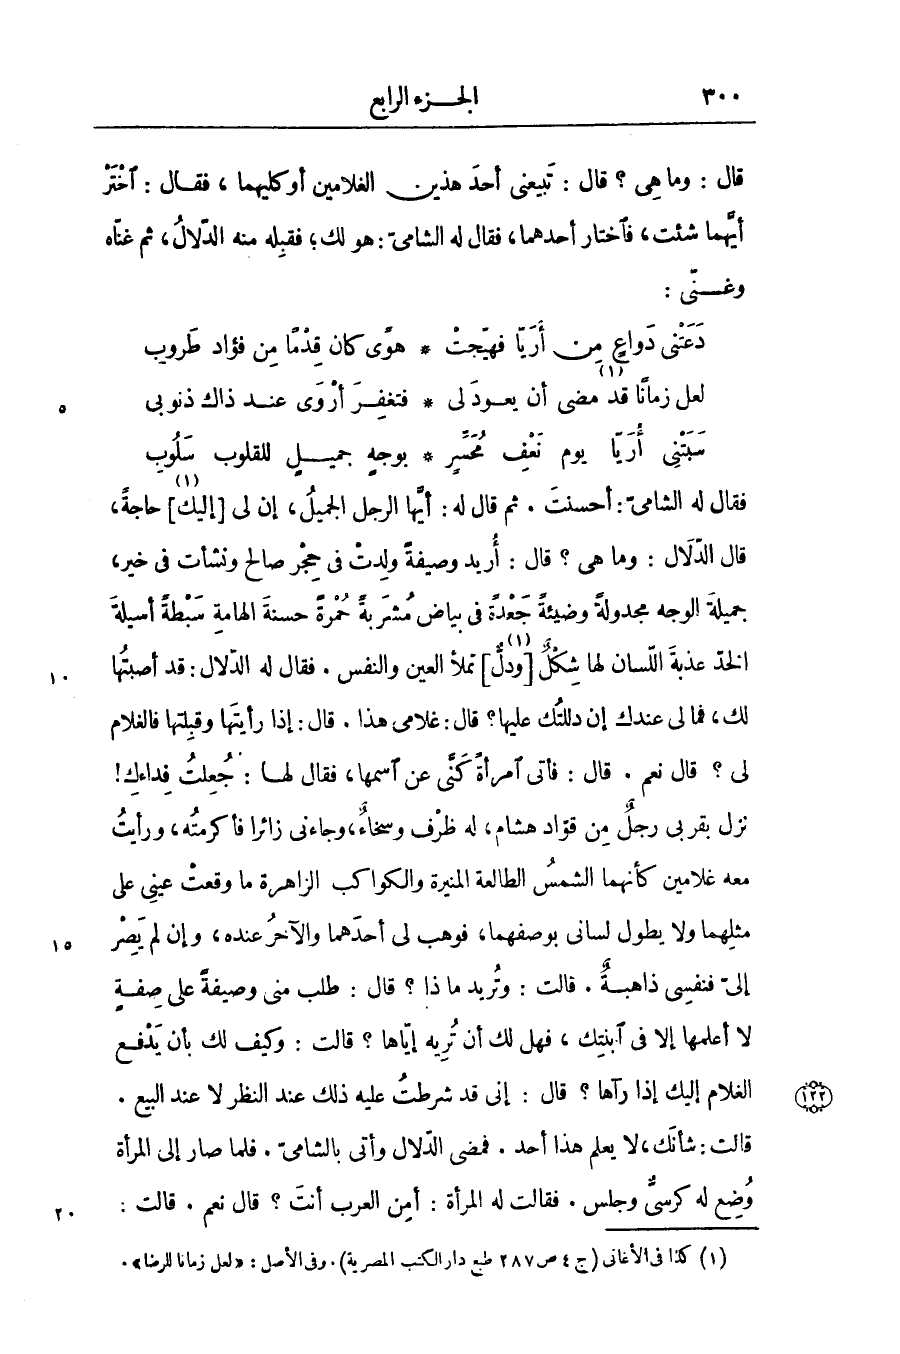 ٣٠٠ الجزء الرابع
قال : وما هِى ؟ قال : تَبيعنى أحدَ هذين الغلامين أو كليهما ، فقال : اَخْتَرْ
أيَّهما شئت، فاَختار أحدهما، فقال له الشامىّ : هو لك؛ فقبِله منه الدّلالُ، ثم غنّاه
وغنّى :
دَعَتْنى دَواعٍ مِن أُرَيّا فهيّجتْ * هوًى كان قِدْمًا مِن فؤاد طَروبِ
لعل زمانًا (١) قد مضى أن يعودَ لى * فتغفِرَ أرْوَى عند ذاك ذنوبى
٥
سَبَتْنِى أُرَيّا يوم نَعْفِ مُحَسِّرٍ * بوجهٍ جميلٍ للقلوب سَلُوبِ
فقال له الشامىّ : أحسنتَ . ثم قال له : أيّها الرجل الجميلُ، إن لى [إليك] (١) حاجةً،
قال الدّلَال : وما هى ؟ قال : أُريد وصيفةً ولِدتْ فى حِجْر صالح ونشأت فى خير،
جميلةَ الوجه مجدولةً وضيئةً جَعْدةً فى بياض مُشْرَبةً حُمْرةً حسنةَ الهامةِ سَبْطةً أسيلةَ
الخدّ عذبةَ اللّسان لها شِكْلٌ [ودلٌّ] (١) تملأ العين والنفس . فقال له الدّلال : قد أصبتُها
١٠
لك، فما لى عندك إن دللتُك عليها؟ قال: غلامى هذا . قال: إذا رأيتَها وقبِلتها فالغلام
لى ؟ قال نعم . قال : فأتى اَمرأةً كَنَّى عن اَسمها، فقال لها : جُعِلتُ فِداءكِ!
نزل بقربى رجلٌ مِن قوّاد هشام، له ظرْف وسخاءٌ، وجاءنى زائرا فأكرمتُه، ورأيتُ
معه غلامين كأنهما الشمسُ الطالعة المنيرة والكواكب الزاهرة ما وقعتْ عينى على
مثلِهما ولا يطول لسانى بوصفهما، فوهب لى أحدَهما والآخرُ عنده، وإن لم يَصِرْ
١٥
إلىّ فنفسِى ذاهبةٌ . قالت : وتُريد ماذا ؟ قال : طلب منى وصيفةً على صِفةٍ
لا أعلمها إلا فى اَبنتِك ، فهل لك أن تُرِيه إيّاها ؟ قالت : وكيف لك بأن يَدْفع
الغلام إليك إذا رآها ؟ قال : إنى قد شرطتُ عليه ذلك عند النظر لا عند البيع .
١٢٢
قالت : شأنَك، لا يعلم هذا أحد . فمضى الدّلال وأتى بالشامىّ . فلما صار إلى المرأة
وُضِع له كرسىٌّ وجلس . فقالت له المرأة : أمِن العرب أنتَ ؟ قال نعم . قالت :
٢٠
(١) كذا فى الأغانى (ج ٤ ص ٢٨٧ طبع دار الكتب المصرية). وفى الأصل : «لعل زمانا للرضا».